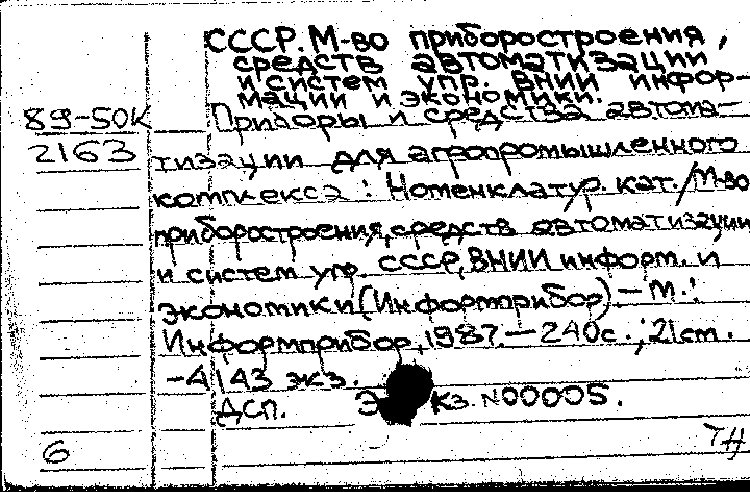 СССР. М-во приборостроения,
средств автоматизации
и систем упр. ВНИИ инфор-
мации и экономики.
89-50К Приборы и средства автома-
2163 тизации для агропромышленного
комплекса : Номенклатур. кат./М-во
приборостроения, средств автоматизации
и систем упр. СССР, ВНИИ информ. и
экономики (Информприбор). – М. :
Информприбор, 1987. – 240с. ; 21 см.
– 4143 экз.
ДСП. Экз. N00005.
6 ТН